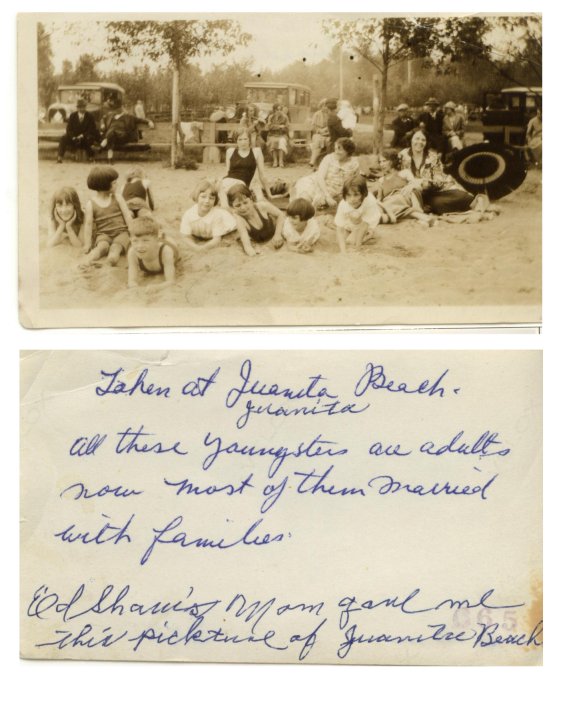 Taken at Juanita Beach.
Juanita
All these Youngsters are adults
now most of them Married
with families.
Ed Sham's Mom gave me
this pickture of Juanita Beach
C65